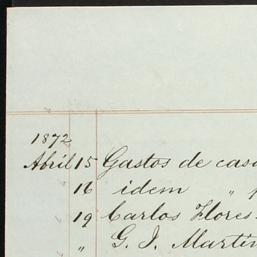 1872
Abril 15 Gastos de casa
16 idem " p
19 Carlos Flores
" G. J. Martin